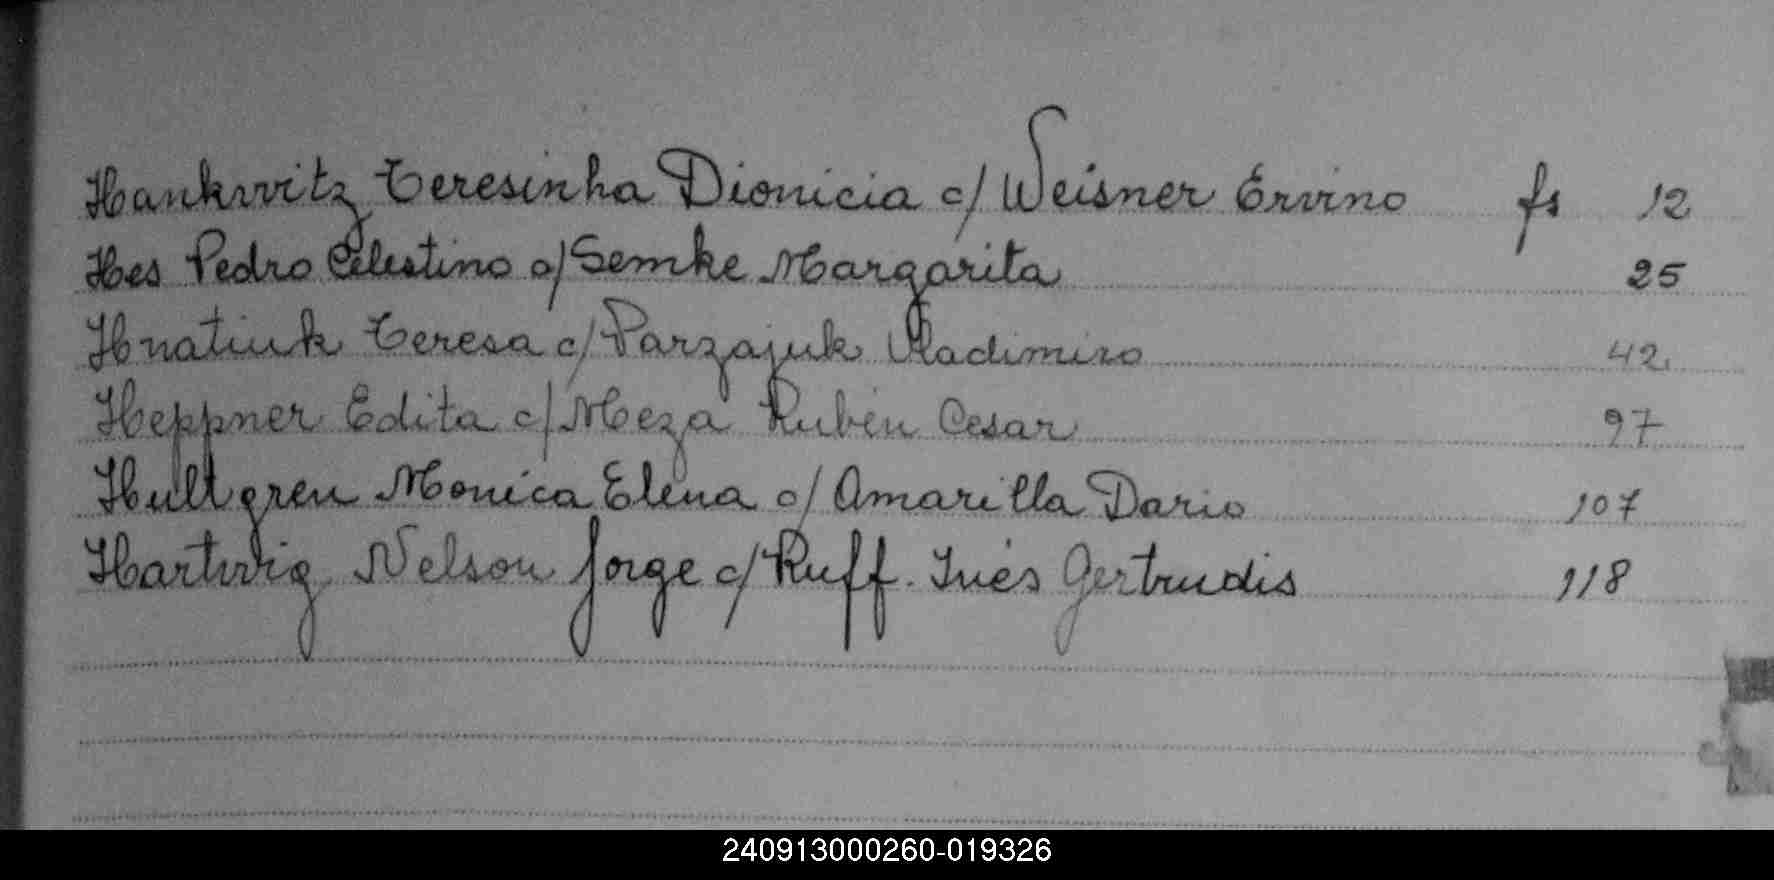 Hankwitz Teresinha Dionicia c/ Weisner Ervino fs 12
Hes Pedro Celestino c/ Semke Margarita 25
Hnatiuk Teresa c/ Parzajuk Vladimiro 42
Heppner Edita c/ Meza Rubén Cesar 97
Hultgren Monica Elena c/ Amarilla Dario 107
Hartwig Nelson Jorge c/ Ruff. Inés Gertrudis 118
240913000260-019326